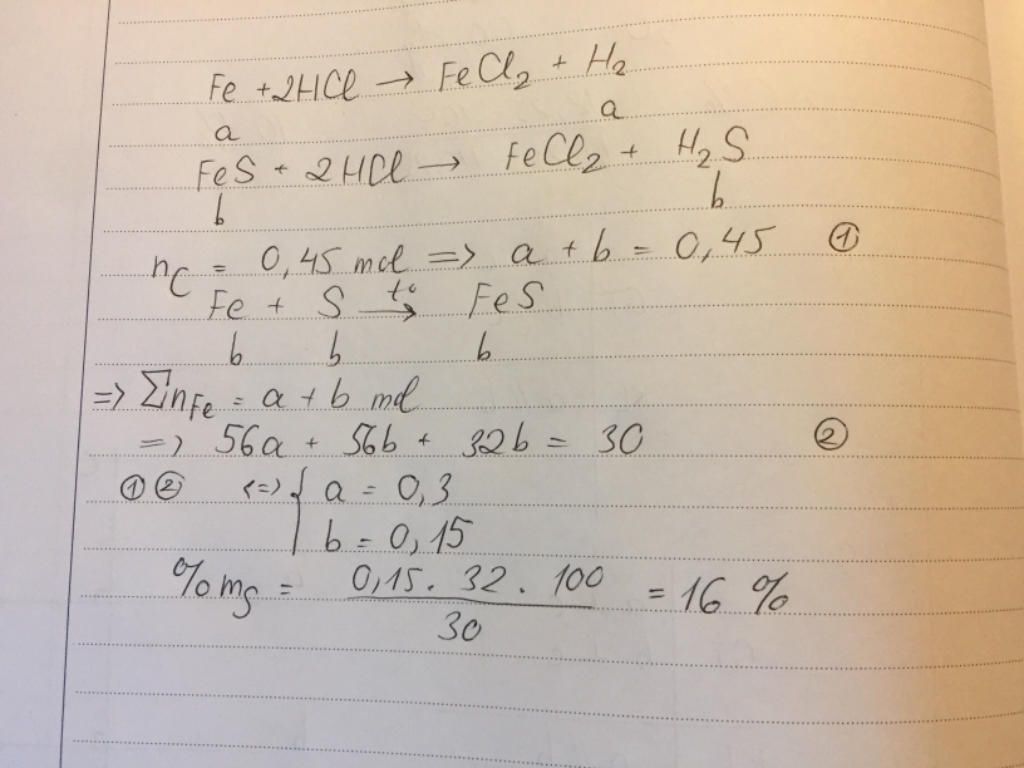 Fe + 2HCl → FeCl₂ + H₂
a a
FeS + 2HCl → FeCl₂ + H₂S
b b
n_C = 0,45 mol => a + b = 0,45 ①
Fe + S —t°→ FeS
b b b
=> Σn_Fe = a + b mol
=> 56a + 56b + 32b = 30 ②
①② <=> { a = 0,3
b = 0,15
%m_S = 0,15 . 32 . 100 / 30 = 16 %